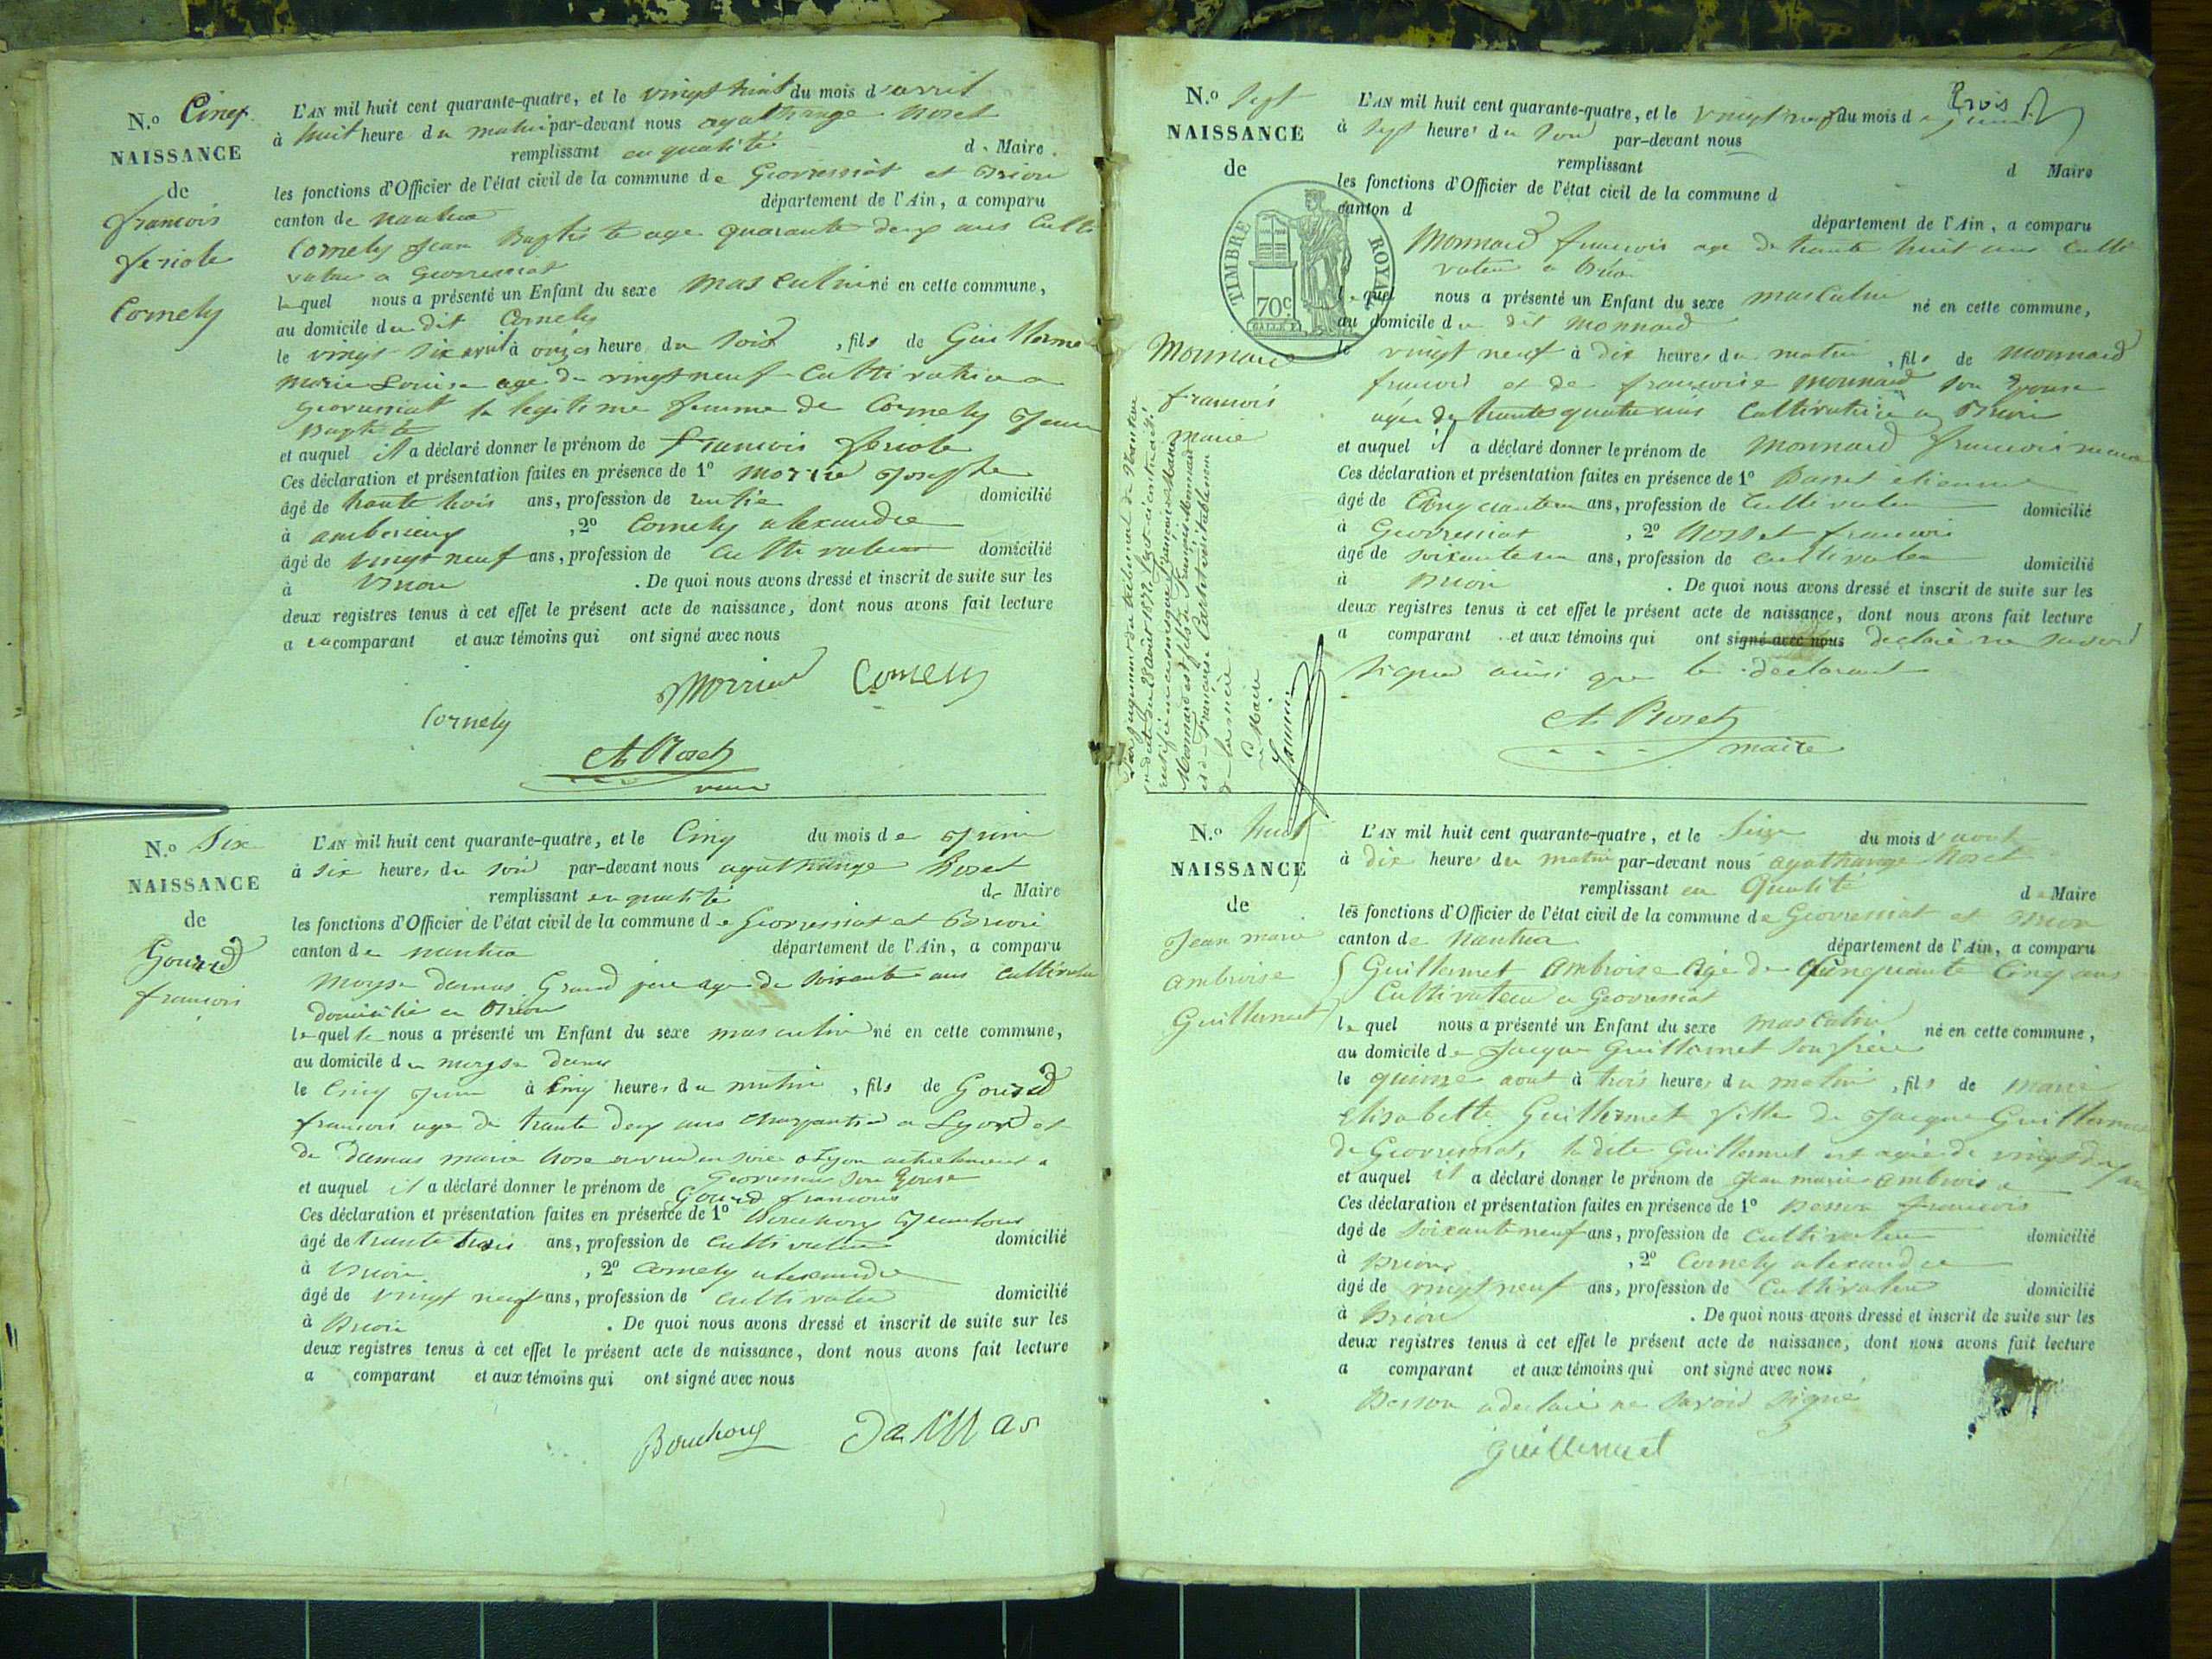 N.º Cinq
NAISSANCE
de
francois
feriole
Cornely
L'AN mil huit cent quarante-quatre, et le vingt huit du mois d'avril
à huit heure du matin par-devant nous agathange Roset
remplissant en qualité de Maire.
les fonctions d'Officier de l'état civil de la commune de Geovressiat et Brion
canton de nantua département de l'Ain, a comparu
Cornely Jean Baptiste age quarante deux ans Culti
vateur a Geovressiat
lequel nous a présenté un Enfant du sexe masculin né en cette commune,
au domicile du dit Cornely
le vingt six avril à onze heure du soir, fils de Guillermet
marie Louise age de vingt neuf Cultivatrice a
geovressiat la legitime femme de Cornely Jean
Baptiste
et auquel il a déclaré donner le prénom de francois feriole
Ces déclaration et présentation faites en présence de 1º Joseph
âgé de trante trois ans, profession de rentie domicilié
à , 2º Cornely alexandre
âgé de vingt neuf ans, profession de cultivateur domicilié
à Brion. De quoi nous avons dressé et inscrit de suite sur les
deux registres tenus à cet effet le présent acte de naissance, dont nous avons fait lecture
a comparant et aux témoins qui ont signé avec nous
Cornely
Cornely
At Roset
N.º Six
NAISSANCE
de
Gourd
francois
L'AN mil huit cent quarante-quatre, et le Cinq du mois de Juin
à six heures du soir par-devant nous agathange Roset
remplissant en qualité de Maire
les fonctions d'Officier de l'état civil de la commune de Geovressiat et Brion
canton de nantua département de l'Ain, a comparu
Moyse damas Grand pere age de soixante ans cultivateur
domicilié a Brion
lequel nous a présenté un Enfant du sexe masculin né en cette commune,
au domicile du moyse damas
le Cinq Juin à Cinq heures du matin, fils de Gourd
francois age de trante deux ans charpantier a Lyon et
de damas marie Rose en soie a Lyon actuelement a
Geovressiat son Epouse
et auquel il a déclaré donner le prénom de Gourd francois
Ces déclaration et présentation faites en présence de 1º Bouchong
âgé de trante trois ans, profession de cultivateur domicilié
à Brion, 2º Cornely alexandre
âgé de vingt neuf ans, profession de cultivateur domicilié
à Brion. De quoi nous avons dressé et inscrit de suite sur les
deux registres tenus à cet effet le présent acte de naissance, dont nous avons fait lecture
a comparant et aux témoins qui ont signé avec nous
Bouchong Damas
trois
N.º Sept
NAISSANCE
de
Monnard
francois
marie
TIMBRE ROYAL
70c
L'AN mil huit cent quarante-quatre, et le vingt neuf du mois de juin
à sept heures du soir par-devant nous
remplissant d Maire
les fonctions d'Officier de l'état civil de la commune d
canton d département de l'Ain, a comparu
Monnard francois age de trante huit ans culti
vateur a Brion
lequel nous a présenté un Enfant du sexe masculin né en cette commune,
au domicile du dit Monnard
le vingt neuf à dix heures du matin, fils de Monnard
francois et de francoise Monnard son Epouse
agée de trante quatre ans Cultivatrice a Brion
et auquel il a déclaré donner le prénom de Monnard francois marie
Ces déclaration et présentation faites en présence de 1º étienne
âgé de Cinquante un ans, profession de Cultivateur domicilié
à Geovressiat, 2º francois
âgé de soixante un ans, profession de cultivateur domicilié
à Brion. De quoi nous avons dressé et inscrit de suite sur les
deux registres tenus à cet effet le présent acte de naissance, dont nous avons fait lecture
a comparant et aux témoins qui ont signé avec nous declaré ne savoir
signer ainsi que le declarant
At Roset
maire
Par jugement du tribunal de Nantua
en date du 28 août 1872
Le Maire
N.º huit
NAISSANCE
de
Jean marie
ambroise
Guillermet
L'AN mil huit cent quarante-quatre, et le seize du mois d'aout
à dix heures du matin par-devant nous agathange Roset
remplissant en Qualité de Maire
les fonctions d'Officier de l'état civil de la commune de Geovressiat et Brion
canton de Nantua département de l'Ain, a comparu
Guillermet Ambroise Agé de Cinquante Cinq ans
Cultivateur a Geovressiat
lequel nous a présenté un Enfant du sexe masculin né en cette commune,
au domicile de Jacque Guillermet son frere
le quinze aout à trois heures du matin, fils de marie
Elisabette Guillermet fille de Jacque Guillermet
de Geovressiat, la dite Guillermet est agée de vingt deux ans
et auquel il a déclaré donner le prénom de Jean marie Ambroise
Ces déclaration et présentation faites en présence de 1º Besson francois
âgé de soixante neuf ans, profession de cultivateur domicilié
à Brion, 2º Cornely alexandre
âgé de vingt neuf ans, profession de Cultivateur domicilié
à Brion. De quoi nous avons dressé et inscrit de suite sur les
deux registres tenus à cet effet le présent acte de naissance, dont nous avons fait lecture
a comparant et aux témoins qui ont signé avec nous
Besson a declaré ne savoir signé
guillermet